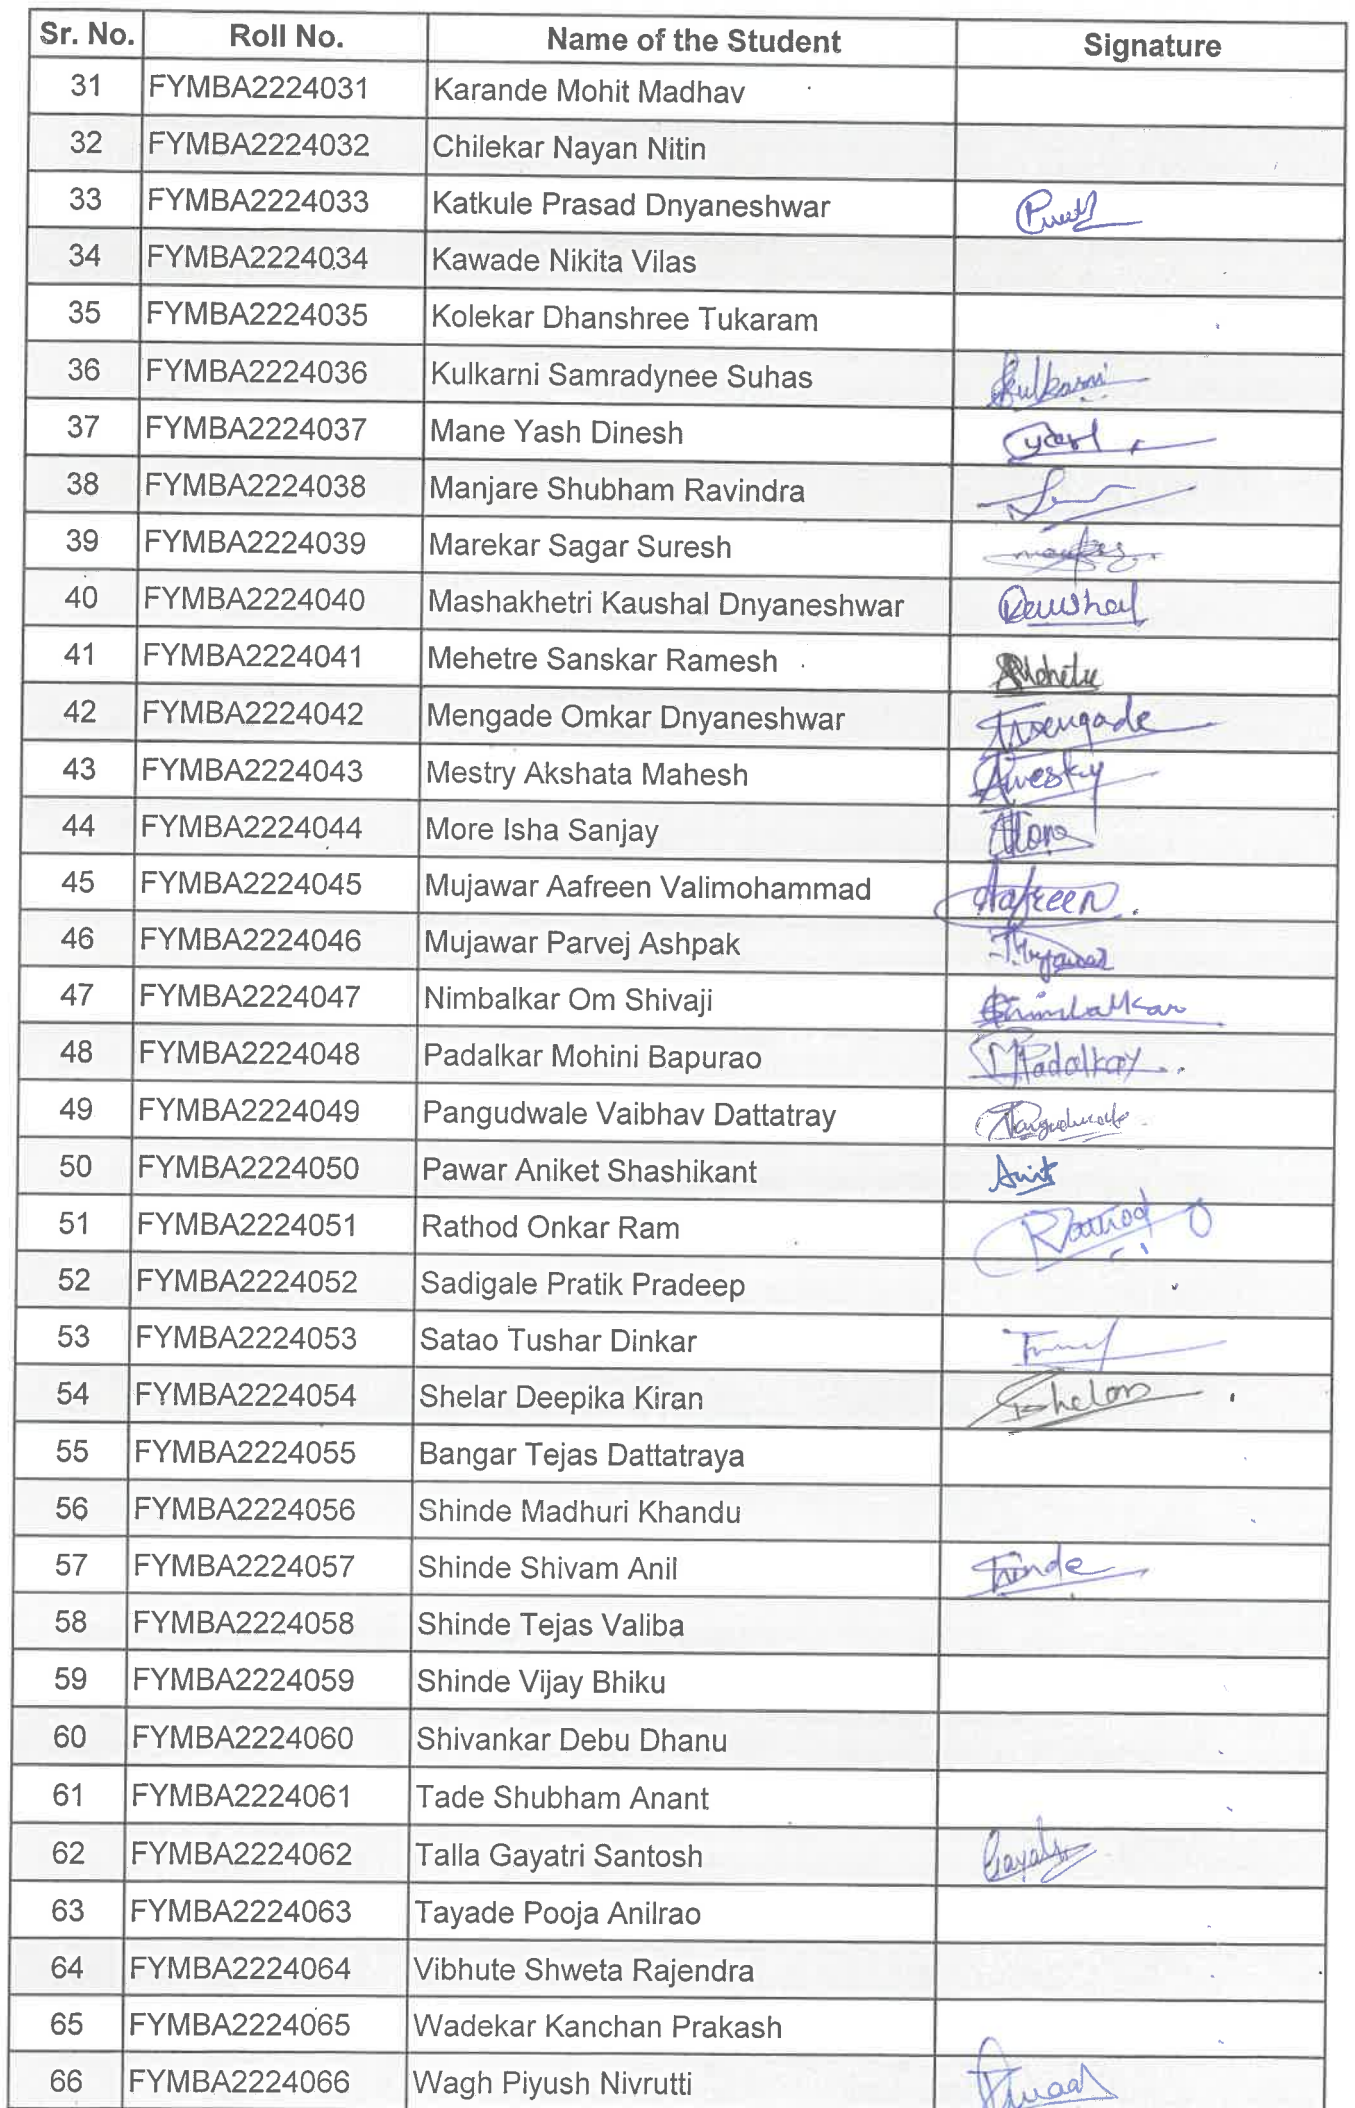 Sr. No. Roll No. Name of the Student Signature
31 FYMBA2224031 Karande Mohit Madhav
32 FYMBA2224032 Chilekar Nayan Nitin
33 FYMBA2224033 Katkule Prasad Dnyaneshwar
34 FYMBA2224034 Kawade Nikita Vilas
35 FYMBA2224035 Kolekar Dhanshree Tukaram
36 FYMBA2224036 Kulkarni Samradynee Suhas Kulkarni
37 FYMBA2224037 Mane Yash Dinesh Yash
38 FYMBA2224038 Manjare Shubham Ravindra
39 FYMBA2224039 Marekar Sagar Suresh
40 FYMBA2224040 Mashakhetri Kaushal Dnyaneshwar Kaushal
41 FYMBA2224041 Mehetre Sanskar Ramesh
42 FYMBA2224042 Mengade Omkar Dnyaneshwar Mengade
43 FYMBA2224043 Mestry Akshata Mahesh
44 FYMBA2224044 More Isha Sanjay More
45 FYMBA2224045 Mujawar Aafreen Valimohammad Aafreen
46 FYMBA2224046 Mujawar Parvej Ashpak Mujawar
47 FYMBA2224047 Nimbalkar Om Shivaji Nimbalkar
48 FYMBA2224048 Padalkar Mohini Bapurao Padalkar
49 FYMBA2224049 Pangudwale Vaibhav Dattatray Pangudwale
50 FYMBA2224050 Pawar Aniket Shashikant
51 FYMBA2224051 Rathod Onkar Ram Rathod
52 FYMBA2224052 Sadigale Pratik Pradeep
53 FYMBA2224053 Satao Tushar Dinkar
54 FYMBA2224054 Shelar Deepika Kiran Shelar
55 FYMBA2224055 Bangar Tejas Dattatraya
56 FYMBA2224056 Shinde Madhuri Khandu
57 FYMBA2224057 Shinde Shivam Anil Shinde
58 FYMBA2224058 Shinde Tejas Valiba
59 FYMBA2224059 Shinde Vijay Bhiku
60 FYMBA2224060 Shivankar Debu Dhanu
61 FYMBA2224061 Tade Shubham Anant
62 FYMBA2224062 Talla Gayatri Santosh Gayatri
63 FYMBA2224063 Tayade Pooja Anilrao
64 FYMBA2224064 Vibhute Shweta Rajendra
65 FYMBA2224065 Wadekar Kanchan Prakash
66 FYMBA2224066 Wagh Piyush Nivrutti